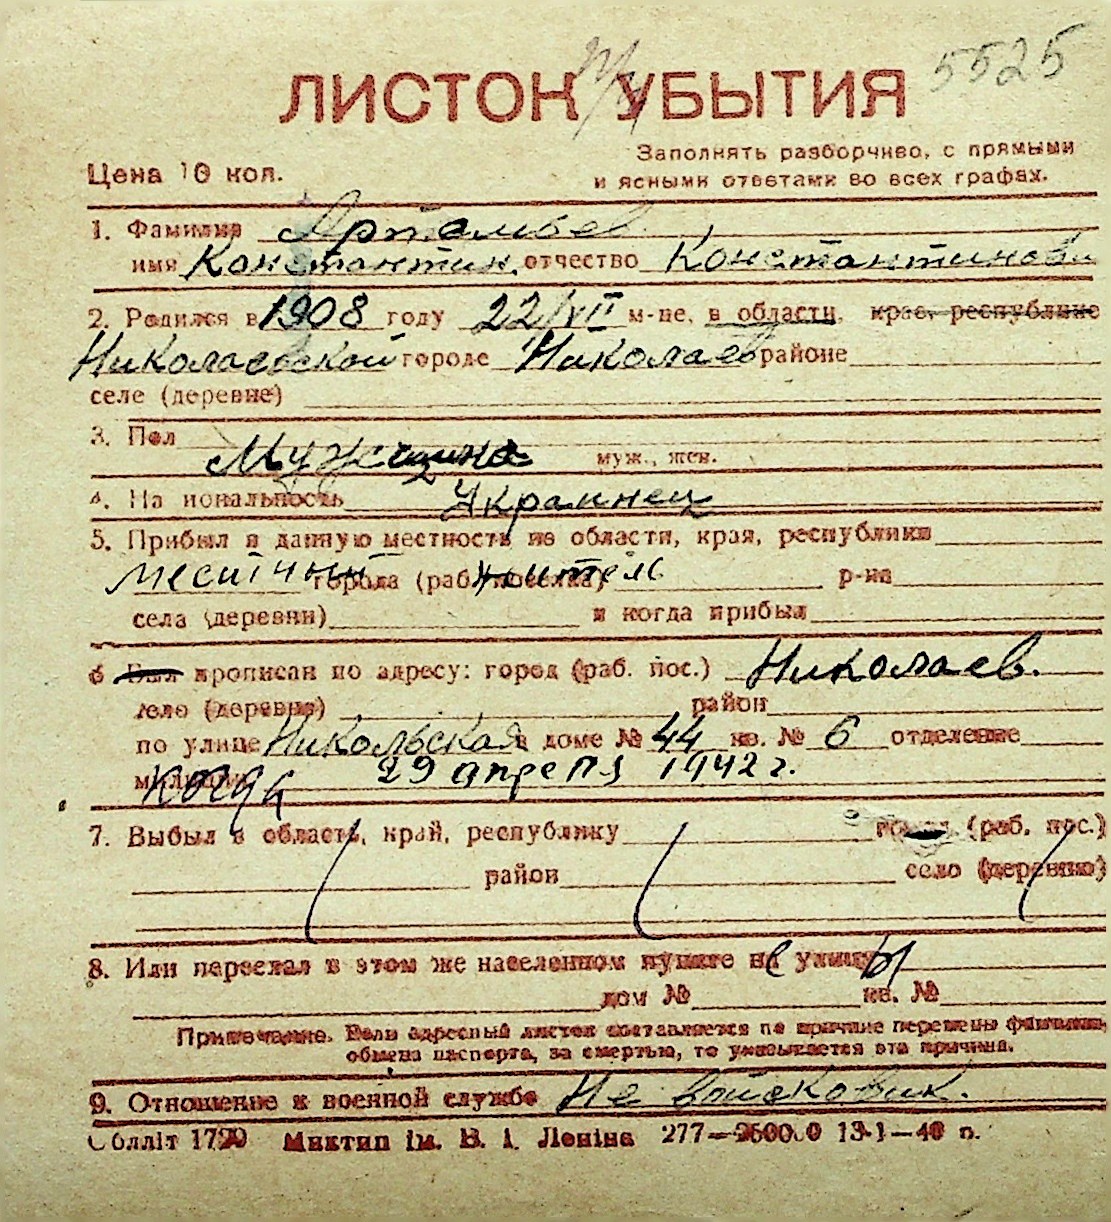 5525
ЛИСТОК УБЫТИЯ
Цена 10 коп.
Заполнять разборчиво, с прямыми
и ясными ответами во всех графах.
1. Фамилия Артемьев
имя Константин отчество Константинови
2. Родился в 1908 году 22/VII м-це, в области, края, республике
Николаевской городе Николаев районе
селе (деревне)
3. Пол Мужчина муж., жен.
4. Национальность Украинец
5. Прибыл в данную местность из области, края, республики
местный города (раб. поселка) житель р-на
села (деревни) и когда прибыл
6 Был прописан по адресу: город (раб. пос.) Николаев.
село (деревне) район
по улице Никольская в доме № 44 кв. № 6 отделение
милиции когда 29 апреля 1942 г.
7. Выбыл в область, край, республику город (раб. пос.)
район село (деревню)
8. Или переехал в этом же населенном пункте на улицу
дом № кв. №
Примечание. Если адресный листок составляется по причине перемены фамилии,
обмена паспорта, за смертью, то указывается эта причина.
9. Отношение к военной службе Не войсковик.
Облліт 1790 Миктип ім. В. І. Леніна 277—25000 13-1—40 п.